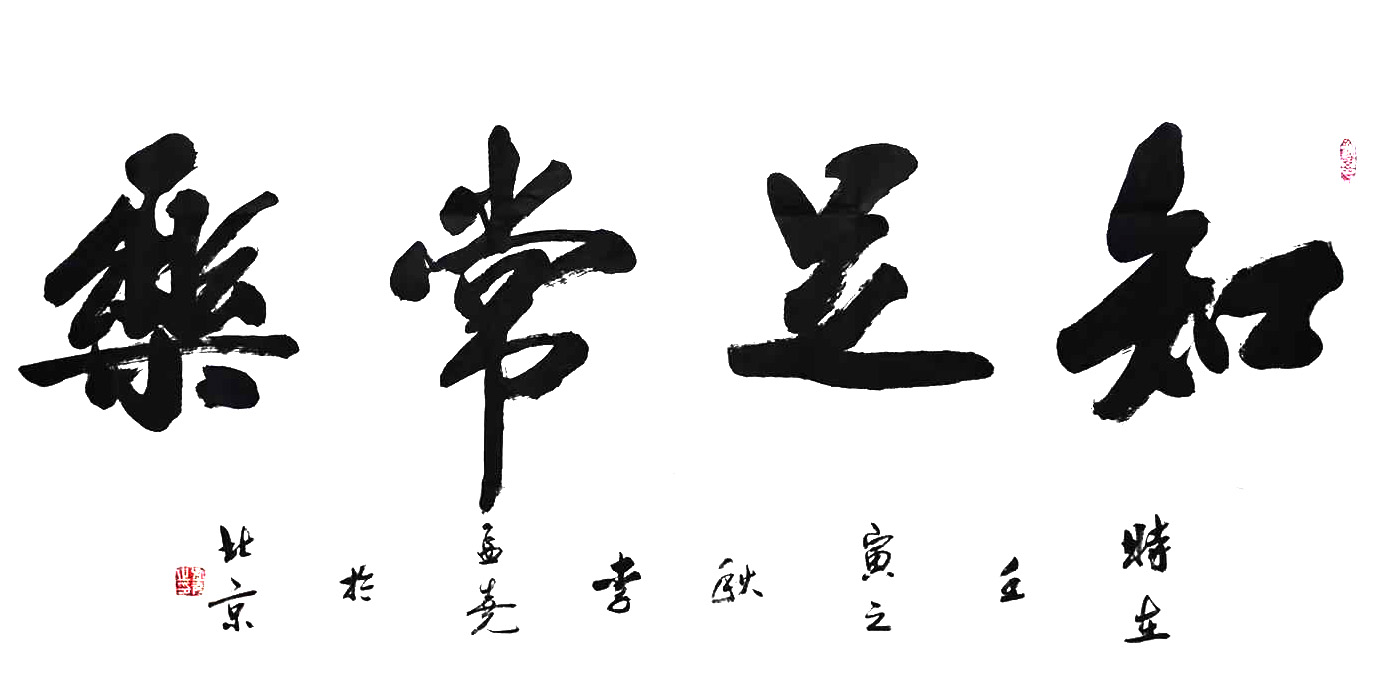 知足常樂
時在壬寅之秋李孟堯於北京